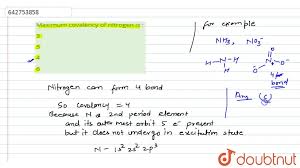 642753858
Maximum covalency of nitrogen is
3
5
4
6
Nitrogen can form 4 bond
So covalency = 4
Because N is 2nd period element
and its outer most orbit 5 e⁻ present
but it does not undergo in excitation state
N - 1s² 2s² 2p³
for example
NH₃, NO₃⁻
H - N - H
H
O
N
O⁻
O⁻
4 bond
Ans (C)
doubtnut